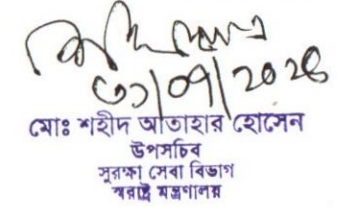 ৩১/০৭/২০২৪
মোঃ শহীদ আতাহার হোসেন
উপসচিব
সুরক্ষা সেবা বিভাগ
স্বরাষ্ট্র মন্ত্রণালয়